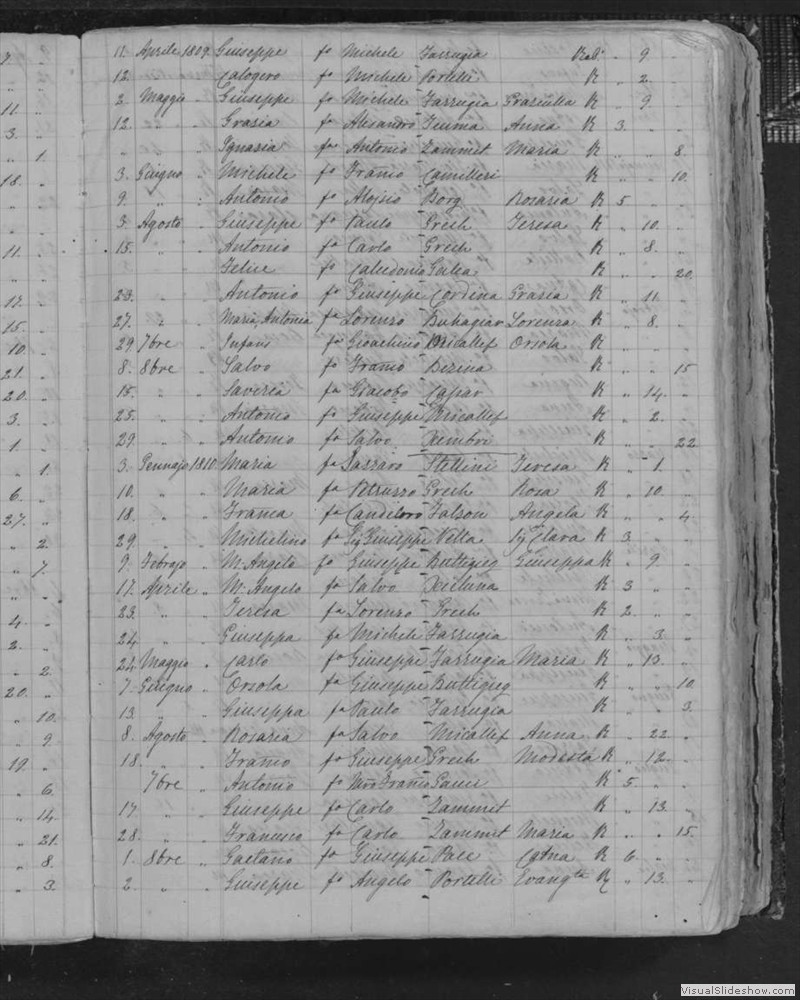 11. Aprile 1809. Giuseppe fo Michele Farrugia Rab. " 9. "
12. " " Calogero fo Michele Portelli R " 2. "
2. Maggio " Giuseppe fo Michele Farrugia Graziulla R " 9. "
12. " " Grazia fa Alesandro Teuma Anna R 3. " "
" " " Ignazia fa Antonio Zammit Maria R " " 8.
3. Giugno " Michele fo Franco Camilleri R " " 10.
9. " " Antonio fo Aloisio Borg Rosaria R 5 " "
3. Agosto " Giuseppe fo Paulo Grech Teresa R " 10. "
15. " " Antonio fo Carlo Grech R " 8. "
Felice fo Galea R " " 20.
23. " " Antonio fo Giuseppe Cordina Grazia R " 11. "
27. " " Maria Antonia fa Lorenzo Buhagiar Lorenza R " 8. "
29. 7bre " fo Gioachino Micallef Orsola R " " "
8. 8bre " Salvo fo Franco R " " 15
15. " " Saveria fa Giacobo R " 14. "
25. " " Antonio fo Giuseppe Micallef R " 2. "
29. " " Antonio fo Salvo R " " 22
3. Gennajo 1810. Maria fa Lazzaro Stellini Teresa R " 1. "
10. " " Maria fa Petruzzo Grech Rosa R " 10. "
18. " " Franca fa Candeloro Falzon Angela R " " 4.
29. " " Michelino fo Giuseppe Vella Clara R 3 " "
9. Febrajo " M. Angelo fo Giuseppe Buttigieg Giuseppa R " 9. "
17. Aprile " M. Angelo fo Salvo Xicluna R 3 " "
23. " " Teresa fa Lorenzo Grech R 2 " "
24. " " Giuseppa fa Michele Farrugia R " 3. "
24. Maggio " Carlo fo Giuseppe Farrugia Maria R " 13. "
7. Giugno " Orsola fa Giuseppe Buttigieg R " " 10.
13. " " Giuseppa fa Paulo Farrugia R " " 3.
8. Agosto " Rosaria fa Salvo Micallef Anna R " 22. "
18. " " Franco fo Giuseppe Grech Modesta R " 12. "
7bre " Antonio fo Franco R 5 " "
17. " " Giuseppe fo Carlo Zammit R " 13. "
28. " " Francesco fo Carlo Zammit Maria R " " 15.
1. 8bre " Gaetano fo Giuseppe Pace Catna R 6 " "
2. " " Giuseppe fo Angelo Portelli Evangta R " 13. "
VisualSlideshow.com